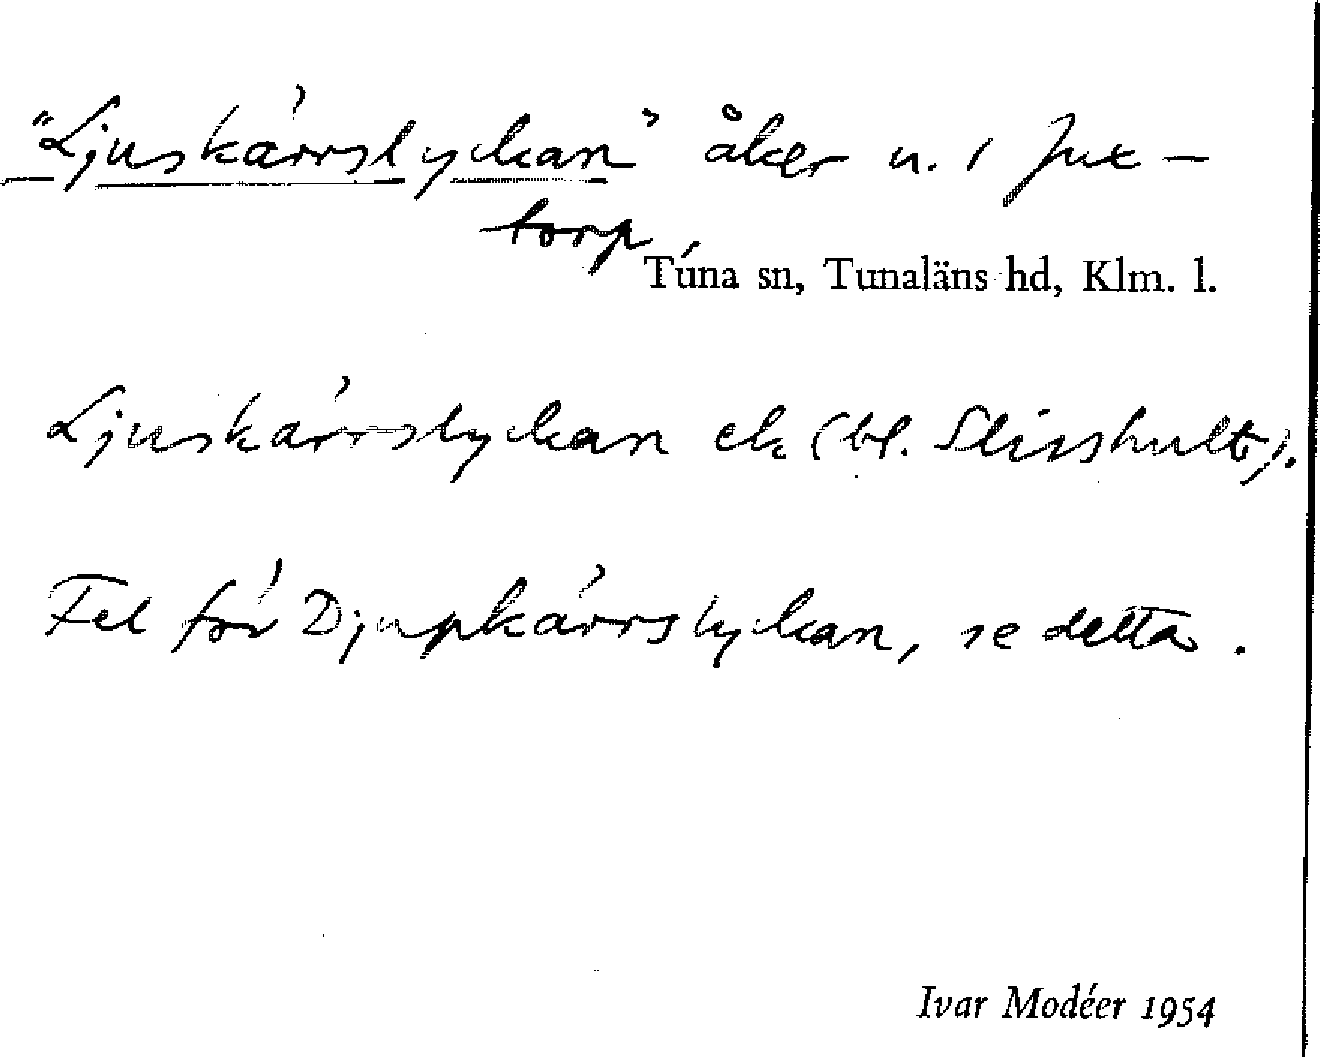 "Ljuskärrslyckan" åker n. 1 Jux-
torp
Túna sn, Tunaläns hd, Klm. l.
Ljuskärrslyckan ek (bl. Slisshult).
Fel för Djupkärrslyckan, se detta.
Ivar Modéer 1954